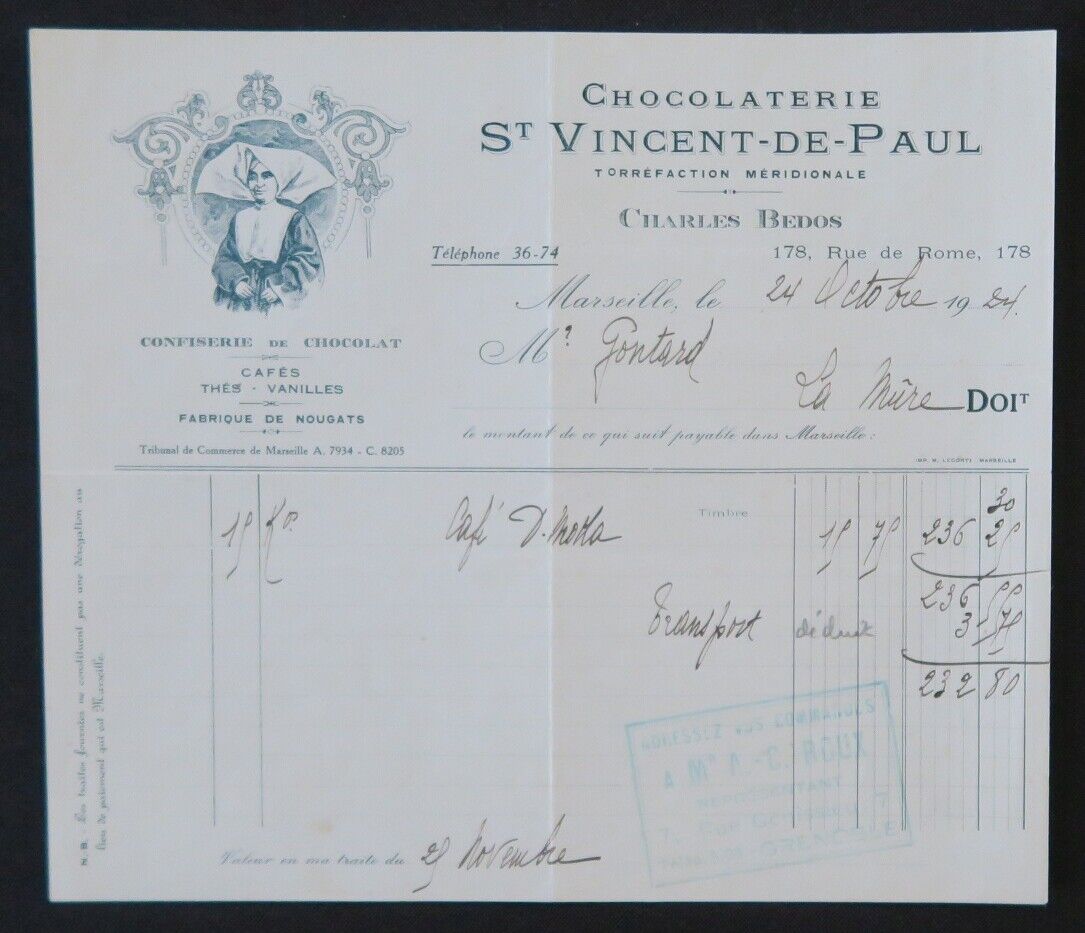 CHOCOLATERIE
ST VINCENT-DE-PAUL
TORRÉFACTION MÉRIDIONALE
CHARLES BEDOS
Téléphone 36-74
178, Rue de Rome, 178
Marseille, le 24 Octobre 1924.
Mr Gontard
La Mûre DOIT
le montant de ce qui suit payable dans Marseille :
CONFISERIE DE CHOCOLAT
CAFÉS
THÉS - VANILLES
FABRIQUE DE NOUGATS
Tribunal de Commerce de Marseille A. 7934 - C. 8205
MARSEILLE
Timbre 30
15 Kos Café D. Moka 15 75 236 25
236 55
Transport déduit 3 75
232 80
ADRESSEZ VOS COMMANDES
A Mr A.-C. ROUX
REPRÉSENTANT
7, RUE 7
GRENOBLE
Valeur en ma traite du 25 Novembre
N. B. - Les traites fournies ne constituent pas une dérogation au
lieu de paiement qui est Marseille.